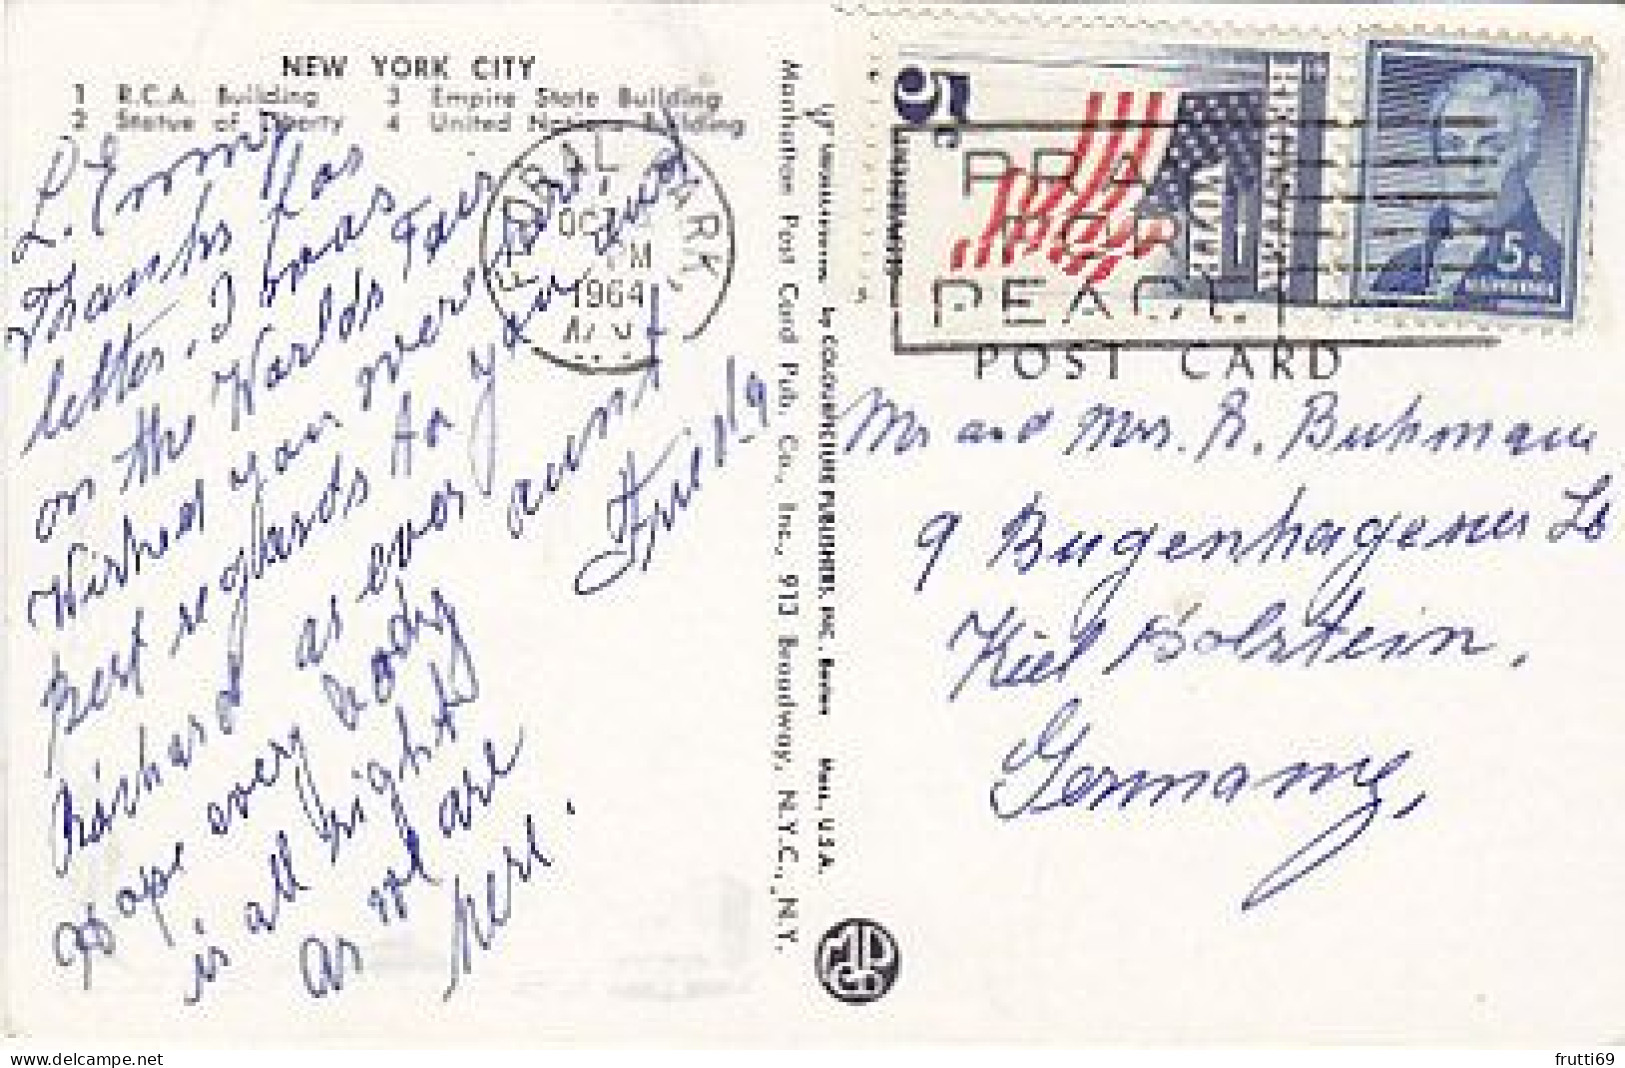 NEW YORK CITY
1 R.C.A. Building 3 Empire State Building
2 Statue of Liberty 4 United Nations Building
L. Emmy
Thanks for
letter. I was
on the World's Fair
Wishes your
Best regards to you
Richard as ever
Hope every body
is all right
as we are
here.
aunt
Frieda
FLORAL PARK,
OCT
PM
1964
N.Y.
Manhattan Post Card Pub. Co., Inc., 913 Broadway, N.Y.C., N.Y.
by COLOURPICTURE PUBLISHERS, INC., Boston Mass., U.S.A.
5c
PRAY
FOR
PEACE
5c
POST CARD
Mr and Mrs. R. Buhmann
9 Bugenhagener
Kiel Holstein.
Germany,
frutti69
delcampe.net